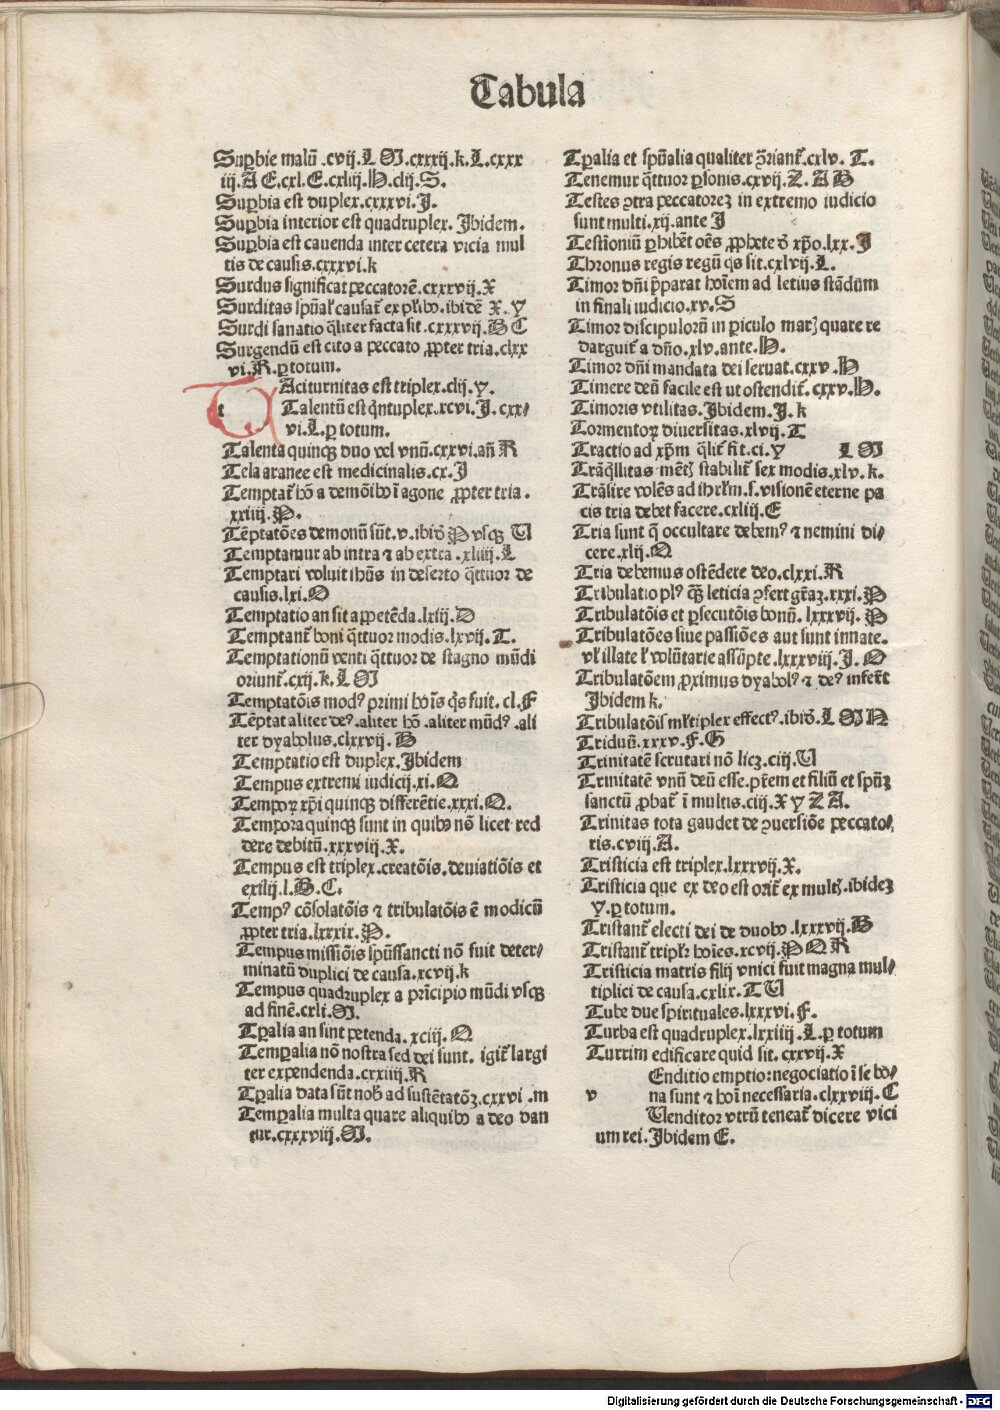 Tabula
Supbie malū .cvij. L M .cxxxij. k. L. cxxx
iij. A E. cxl. E. cxliij. H. clij. S.
Supbia est duplex. cxxxvi. J.
Supbia interior est quadruplex. Ibidem.
Supbia est cauenda inter cetera vicia mul
tis de causis. cxxxvi. k
Surdus significat peccatorē. cxxxvij. X
Surditas spūal' causat̄ ex plib9. ibidē X. Y
Surdi sanatio q̄liter facta sit. cxxxvij. B C
Surgendū est cito a peccato ꝓpter tria. clxx
vi. R. ꝑ totum.
t
Aciturnitas est triplex. clij. Y.
Talentū est q̄ntuplex. xcvi. J. cxx⸗
vi. L. ꝑ totum.
Talenta quinqꝫ duo vel vnū. cxxvi. an̄ R
Tela aranee est medicinalis. cx. J
Temptat̄ hō a demōib9 ī agone ꝓpter tria.
xxiiij. P.
Tēptatōes demonū sūt. v. ibidē P vsqꝫ U
Temptamur ab intra ⁊ ab extra. xliiij. L
Temptari voluit ihūs in deserto q̄ttuor de
causis. lxi. O
Temptatio an sit appetēda. lxiij. D
Temptant̄ boni q̄ttuor modis. lxvij. T.
Temptationū venti q̄ttuor de stagno mūdi
oriunt̄. cxij. k. L M
Temptatōis modꝰ primi hoīs q̄s fuit. cl. F
Tēptat aliter deꝰ. aliter hō. aliter mūdꝰ. ali
ter dyabolus. clxxvij. B
Temptatio est duplex. Ibidem
Tempus extremi iudicij. xi. Q.
Tempoꝝ xp̄i quinqꝫ differētie. xxxi. Q.
Tempora quinqꝫ sunt in quib9 nō licet red
dere debitū. xxxviij. X.
Tempus est triplex. creatōis. deuiatiōis et
exilij. l. B. C.
Tempꝰ cōsolatōis ⁊ tribulatōis ē modicū
ꝓpter tria. lxxxix. P.
Tempus missiōis spūssancti nō fuit deter⸗
minatū duplici de causa. xcvij. k
Tempus quadruplex a prīcipio mūdi vsqꝫ
ad finē. cxli. M.
Tꝑalia an sint petenda. xciij. Q
Temꝑalia nō nostra sed dei sunt. igit̄ largi
ter expendenda. cxxiiij. R
Tꝑalia data sūt nob̄ ad sustētatōꝫ. cxxvi. m
Temꝑalia multa quare aliquib9 a deo dan
tur. cxxxviij. M.
Tꝑalia et spūalia qualiter ꝯ̄riant̄. cxlv. T.
Tenemur q̄ttuor ꝑsonis. cxvij. Z. A B
Testes ꝯtra peccatoreꝫ in extremo iudicio
sunt multi. xij. ante J
Testīoniū ꝑhibēt oēs ꝓphete d̄ xp̄o. lxx. J
Thronus regis regū q̄s sit. cxlvij. L.
Timor dn̄i p̄parat hoīem ad letius stādum
in finali iudicio. xv. S
Timor discipulorū in ꝑiculo marꝭ quare re
darguit̄ a dn̄o. xlv. ante. H.
Timor dn̄i mandata dei seruat. cxxv. H
Timere deū facile est ut ostendit̄. cxxv. H.
Timoris vtilitas. Ibidem. J. k
Tormentoꝝ diuersitas. xlvij. T
Tractio ad xp̄m q̄lit̄ fit. ci. Y L M
Trāq̄llitas mētꝭ stabilit̄ sex modis. xlv. k.
Trāsire volēs ad ihrl'm. s. visionē eterne pa
cis tria debet facere. cxliij. E
Tria sunt q̄ occultare debemꝰ ⁊ nemini di⸗
cere. xlij. Q
Tria debemus ostēdere deo. clxxi. R
Tribulatio plꝰ q̄ꝫ leticia ꝯfert gr̄aꝫ. xxxi. P
Tribulatōis et ꝑsecutōis bonū. lxxxvij. P
Tribulatōes siue passiōes aut sunt innate.
vl' illate l' volūtarie assūpte. lxxxviij. J. O
Tribulatōem ꝓximus dyabolꝰ ⁊ deꝰ infert̄
Ibidem k.
Tribulatōis ml'tiplex effectꝰ. ibid̄. L M N
Triduū. xxxv. F. G
Trinitatē scrutari nō licꝫ. ciij. U
Trinitatē vnū deū esse. pr̄em et filiū et spūꝫ
sanctū ꝓbat̄ ī multis. ciij. X Y Z A.
Trinitas tota gaudet de ꝯuersiōe peccato⸗
ris. cviij. A.
Tristicia est triplex. lxxxvij. X.
Tristicia que ex deo est orit̄ ex multꝭ. ibidez
Y. ꝑ totum.
Tristant̄ electi dei de duob9. lxxxvij. B
Tristant̄ tripl'r hoīes. xcvij. P Q R
Tristicia matris filij vnici fuit magna mul⸗
tiplici de causa. cxlix. T U
Tube due spirituales. lxxxvi. F.
Turba est quadruplex. lxxiiij. L. ꝑ totum
Turrim edificare quid sit. cxxvij. X
Enditio emptio: negociatio ī se bo⸗
v na sunt ⁊ hoī necessaria. clxxviij. C
Uenditor vtrū teneat̄ dicere vici
um rei. Ibidem E.
Digitalisierung gefördert durch die Deutsche Forschungsgemeinschaft - DFG